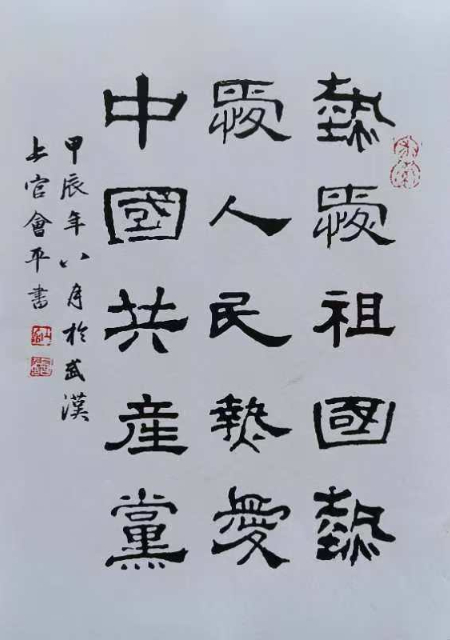 熱愛祖國熱
愛人民熱愛
中國共產黨
甲辰年八月於武漢
上官會平書